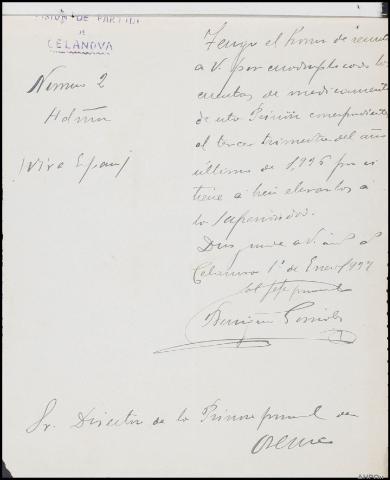 PRISIÓN DE PARTIDO
DE
CELANOVA
Numero 2
Admon
¡Viva España!
Tengo el honor de remitir
a V. por cuadruplicado las
cuentas de medicamentos
de esta Prisión correspondiente
al tercer trimestre del año
último de 1,936 por si
tiene a bien elevarlas a
la superioridad.
Dios guarde a V.
Celanova 1º de Enero 1937
El Jefe
Sr. Director de la Prision provincial de
Orense